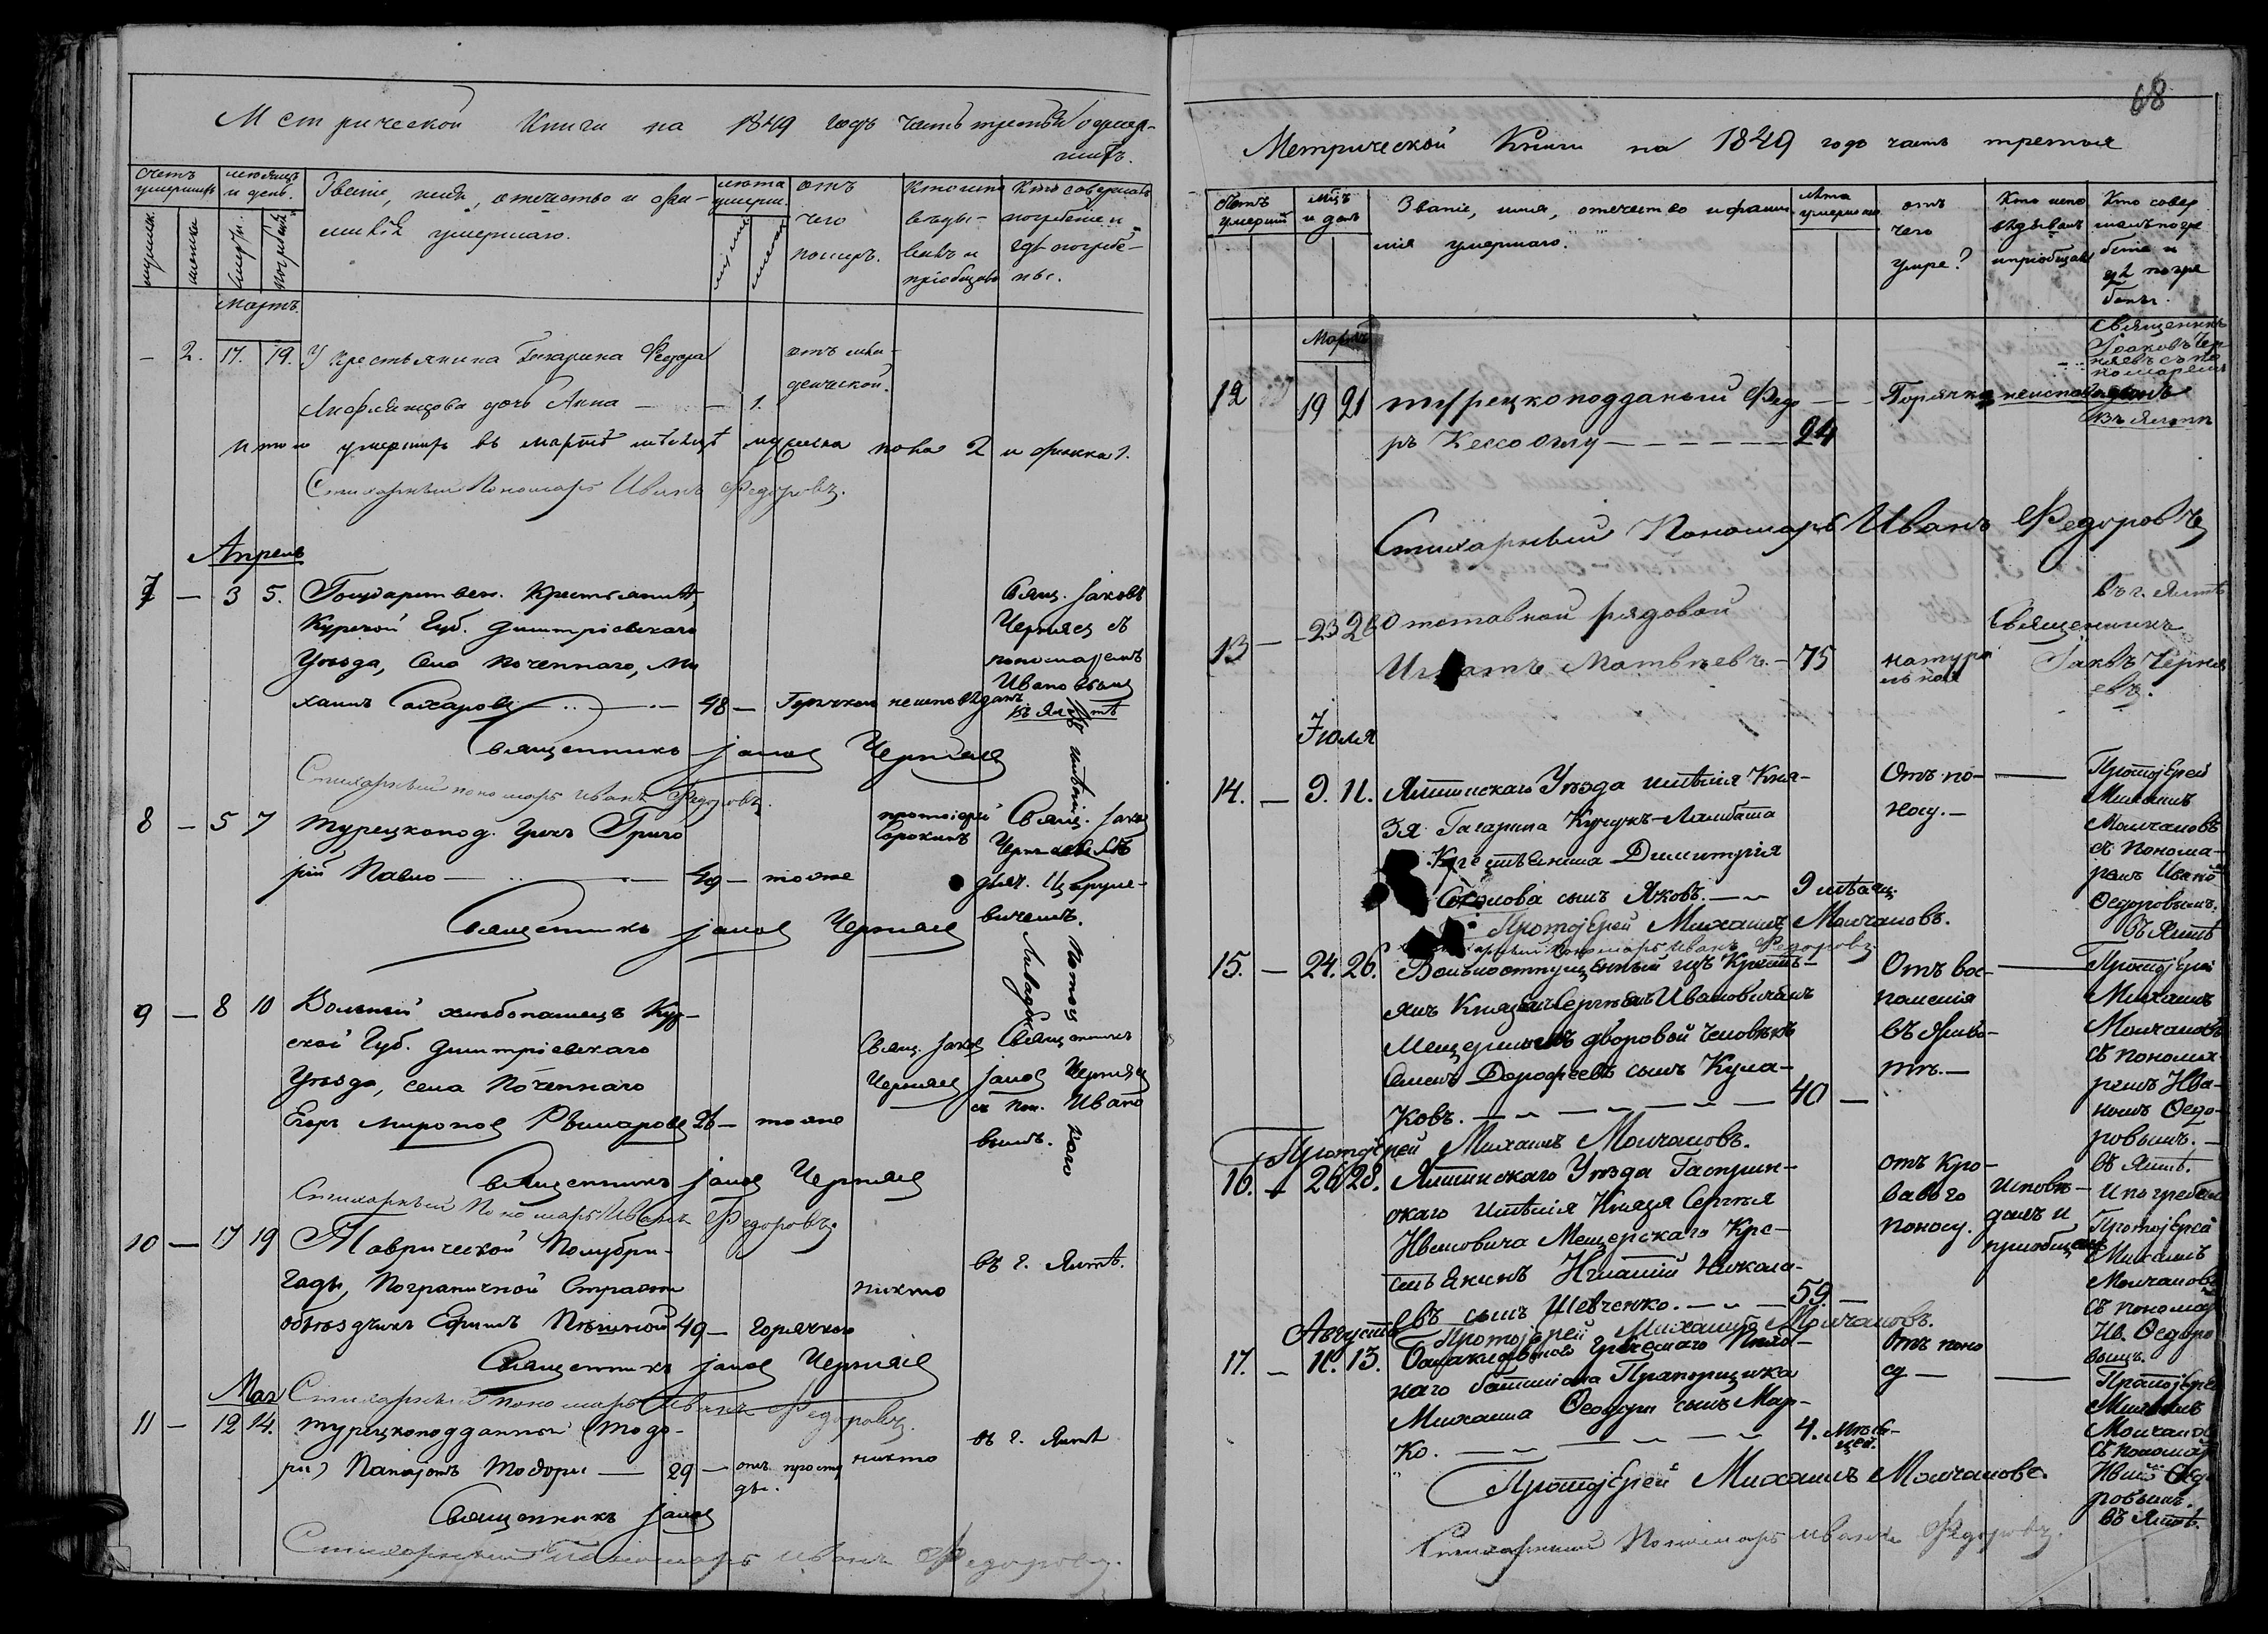 Метрической Книги на 1849 годъ часть третья о умер-
шихъ.
счетъ
умершихъ
мѣсяцъ
и день.
Званіе, имя, отечество и фа-
милія умершаго.
лѣта
умерш.
отъ
чего
померъ.
Кто испо
вѣды-
валъ и
пріобщалъ
Кто совершалъ
погребеніе и
гдѣ погребе-
ны.
Мартъ.
— 2. 17. 19. У крестьянина Гагарина Федора
дочь Анна — — 1.
отъ мла-
денческой.
Итого умершихъ въ мартѣ мѣсяцѣ мужеска пола 2 и женска 1.
Стихарный Пономарь Иванъ Федоровъ.
Апрель
7 — 3 5. Государствен. Крестьянинъ,
Курской Губ. Димитріевскаго
Уѣзда, Села Поченнаго, Ми
хаилъ Сахаровъ — 48 — Горячкой неисповѣданъ
Свящ. Іаковъ
Черняевъ съ
пономаремъ
Ивановымъ
въ Ялтѣ
Священникъ Іаковъ Черняевъ
Стихарный пономарь Иванъ Федоровъ.
8 — 5 7 Турецкопод. Грекъ Григо
рій Павло — 49 — тоже
протоіерей
Сорокинъ
Свящ. Іаковъ
Черняевъ съ
вичемъ.
Священникъ Іаковъ Черняевъ
9 — 8 10 Вольный хлѣбопашецъ Кур-
ской Губ. Димитріевскаго
Уѣзда, села Поченнаго
Егоръ Мироновъ 26 — тоже
Свящ. Іаковъ
Черняевъ
Священникъ
Іаковъ Черняевъ
съ пон. Ивано
вымъ.
Священникъ Іаковъ Черняевъ
Стихарный Пономарь Иванъ Федоровъ.
10 — 17 19 Таврической Полубри-
гады, Пограничной Стражи
объѣздчикъ Ефимъ 49 — горячкою
никто
въ г. Ялтѣ.
Священникъ Іаковъ Черняевъ
Май
Стихарный пономарь Иванъ Федоровъ.
11 — 12 14. Турецкоподданный (Тодо-
ри) Панаіотъ Тодоры — 29 — отъ просту
ды.
никто
въ г. Ялтѣ
Священникъ Іаковъ
Стихарный Пономарь Иванъ Федоровъ.
68
Метрической Книги на 1849 годъ часть третья
Счетъ
умерши
мѣц
и день
Званіе, имя, отечество и фами
лія умершаго.
Лѣта
умершаго
отъ
чего
умре?
Кто испо
вѣдывалъ
и пріобщалъ
Кто совер
шалъ погре
беніе и
гдѣ погре
бенъ.
Мартъ
Священникъ
Іаковъ Чер-
няевъ съ по
номаремъ
12 19 21 турецкоподданый Федо — — Горячка неисповѣданъ
ръ Кессоглу — — — — — 24
Въ Ялтѣ
Стихарный Пономарь Иванъ Федоровъ
13 — 23 26 Отставной рядовой
Игнатъ Матвѣевъ. — 75
натура
льная
въ г. Ялтѣ
Священникъ
Іаковъ Черня
евъ.
Іюля
14. — 9. 11. Ялтинскаго Уѣзда имѣнія Кня-
зя Гагарина Кучукъ-Ламбата
Крестьянина Димитрія
Соколова сынъ Яковъ. — 9 мѣсяц.
Отъ по-
носу. —
Протоіерей
Михаилъ
Молчановъ
съ понома-
ремъ Ивано
Ѳедоровымъ.
въ Ялтѣ
Протоіерей Михаилъ Молчановъ.
Стихарный Пономарь Иванъ Федоровъ
15. — 24. 26. Вольноотпущенный изъ Кресть-
янъ Княземъ Сергѣемъ Ивановичемъ
Мещерскимъ дворовой человѣкъ
Семенъ Дорофеевъ сынъ Кула-
ковъ. — — — — — 40 —
Отъ вос-
паленія
въ живо-
тѣ. —
Протоіерей
Михаилъ
Молчановъ
съ понома-
ремъ Ива-
номъ Ѳедо-
ровымъ. —
въ Ялтѣ.
Протоіерей Михаилъ Молчановъ.
16. — 26 28. Ялтинскаго Уѣзда Гасприн-
скаго имѣнія Князя Сергѣя
Ивановича Мещерскаго Кре-
стьянинъ Игнатій Никола-
евъ сынъ Шевченко. — — 59. —
отъ Кро-
ваваго
поносу.
Исповѣ-
далъ и
пріобщалъ
И погребалъ
Протоіерей
Михаилъ
Молчановъ
съ пономар
Ив. Ѳедоро
вымъ.
Протоіерей Михаилъ Молчановъ.
Августъ
17. — 11. 13. Балаклавскаго Греческаго Пѣхо-
наго баталіона Прапорщика
Михаила Ѳеодори сынъ Мар-
ко. — — — — — 4. мѣся-
цей.
Отъ поно
су —
Протоіерей
Михаилъ
Молчановъ
съ пономар
Ивано Ѳедо
ровымъ.
въ Ялтѣ.
Протоіерей Михаилъ Молчановъ.
Стихарный Пономарь Иванъ Федоровъ.